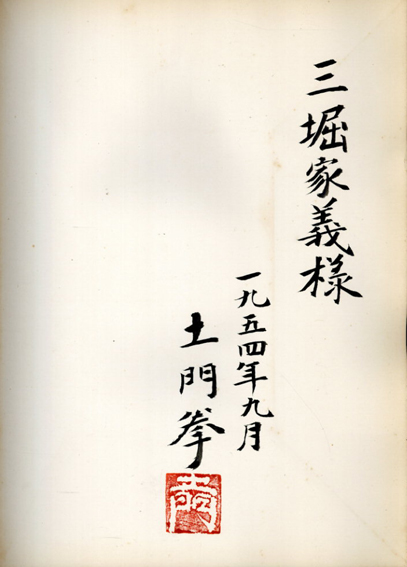 三堀家義様
一九五四年九月
土門拳